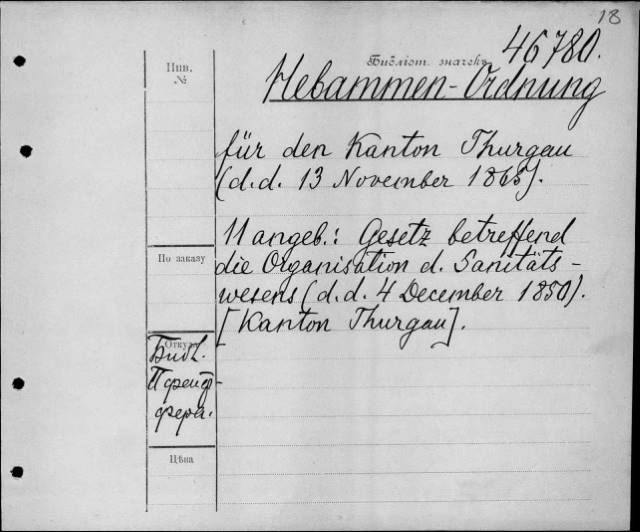 18
46780.
Библіот. значекъ
Hebammen-Ordnung
für den Kanton Thurgau
(d.d. 13 November 1865).
11 angeb.: Gesetz betreffend
die Organisation d. Sanitäts-
wesens (d.d. 4 December 1850).
[Kanton Thurgau].
Инв.
№
По заказу
Откуда
Библ.
Пфейф-
фера.
Цѣна